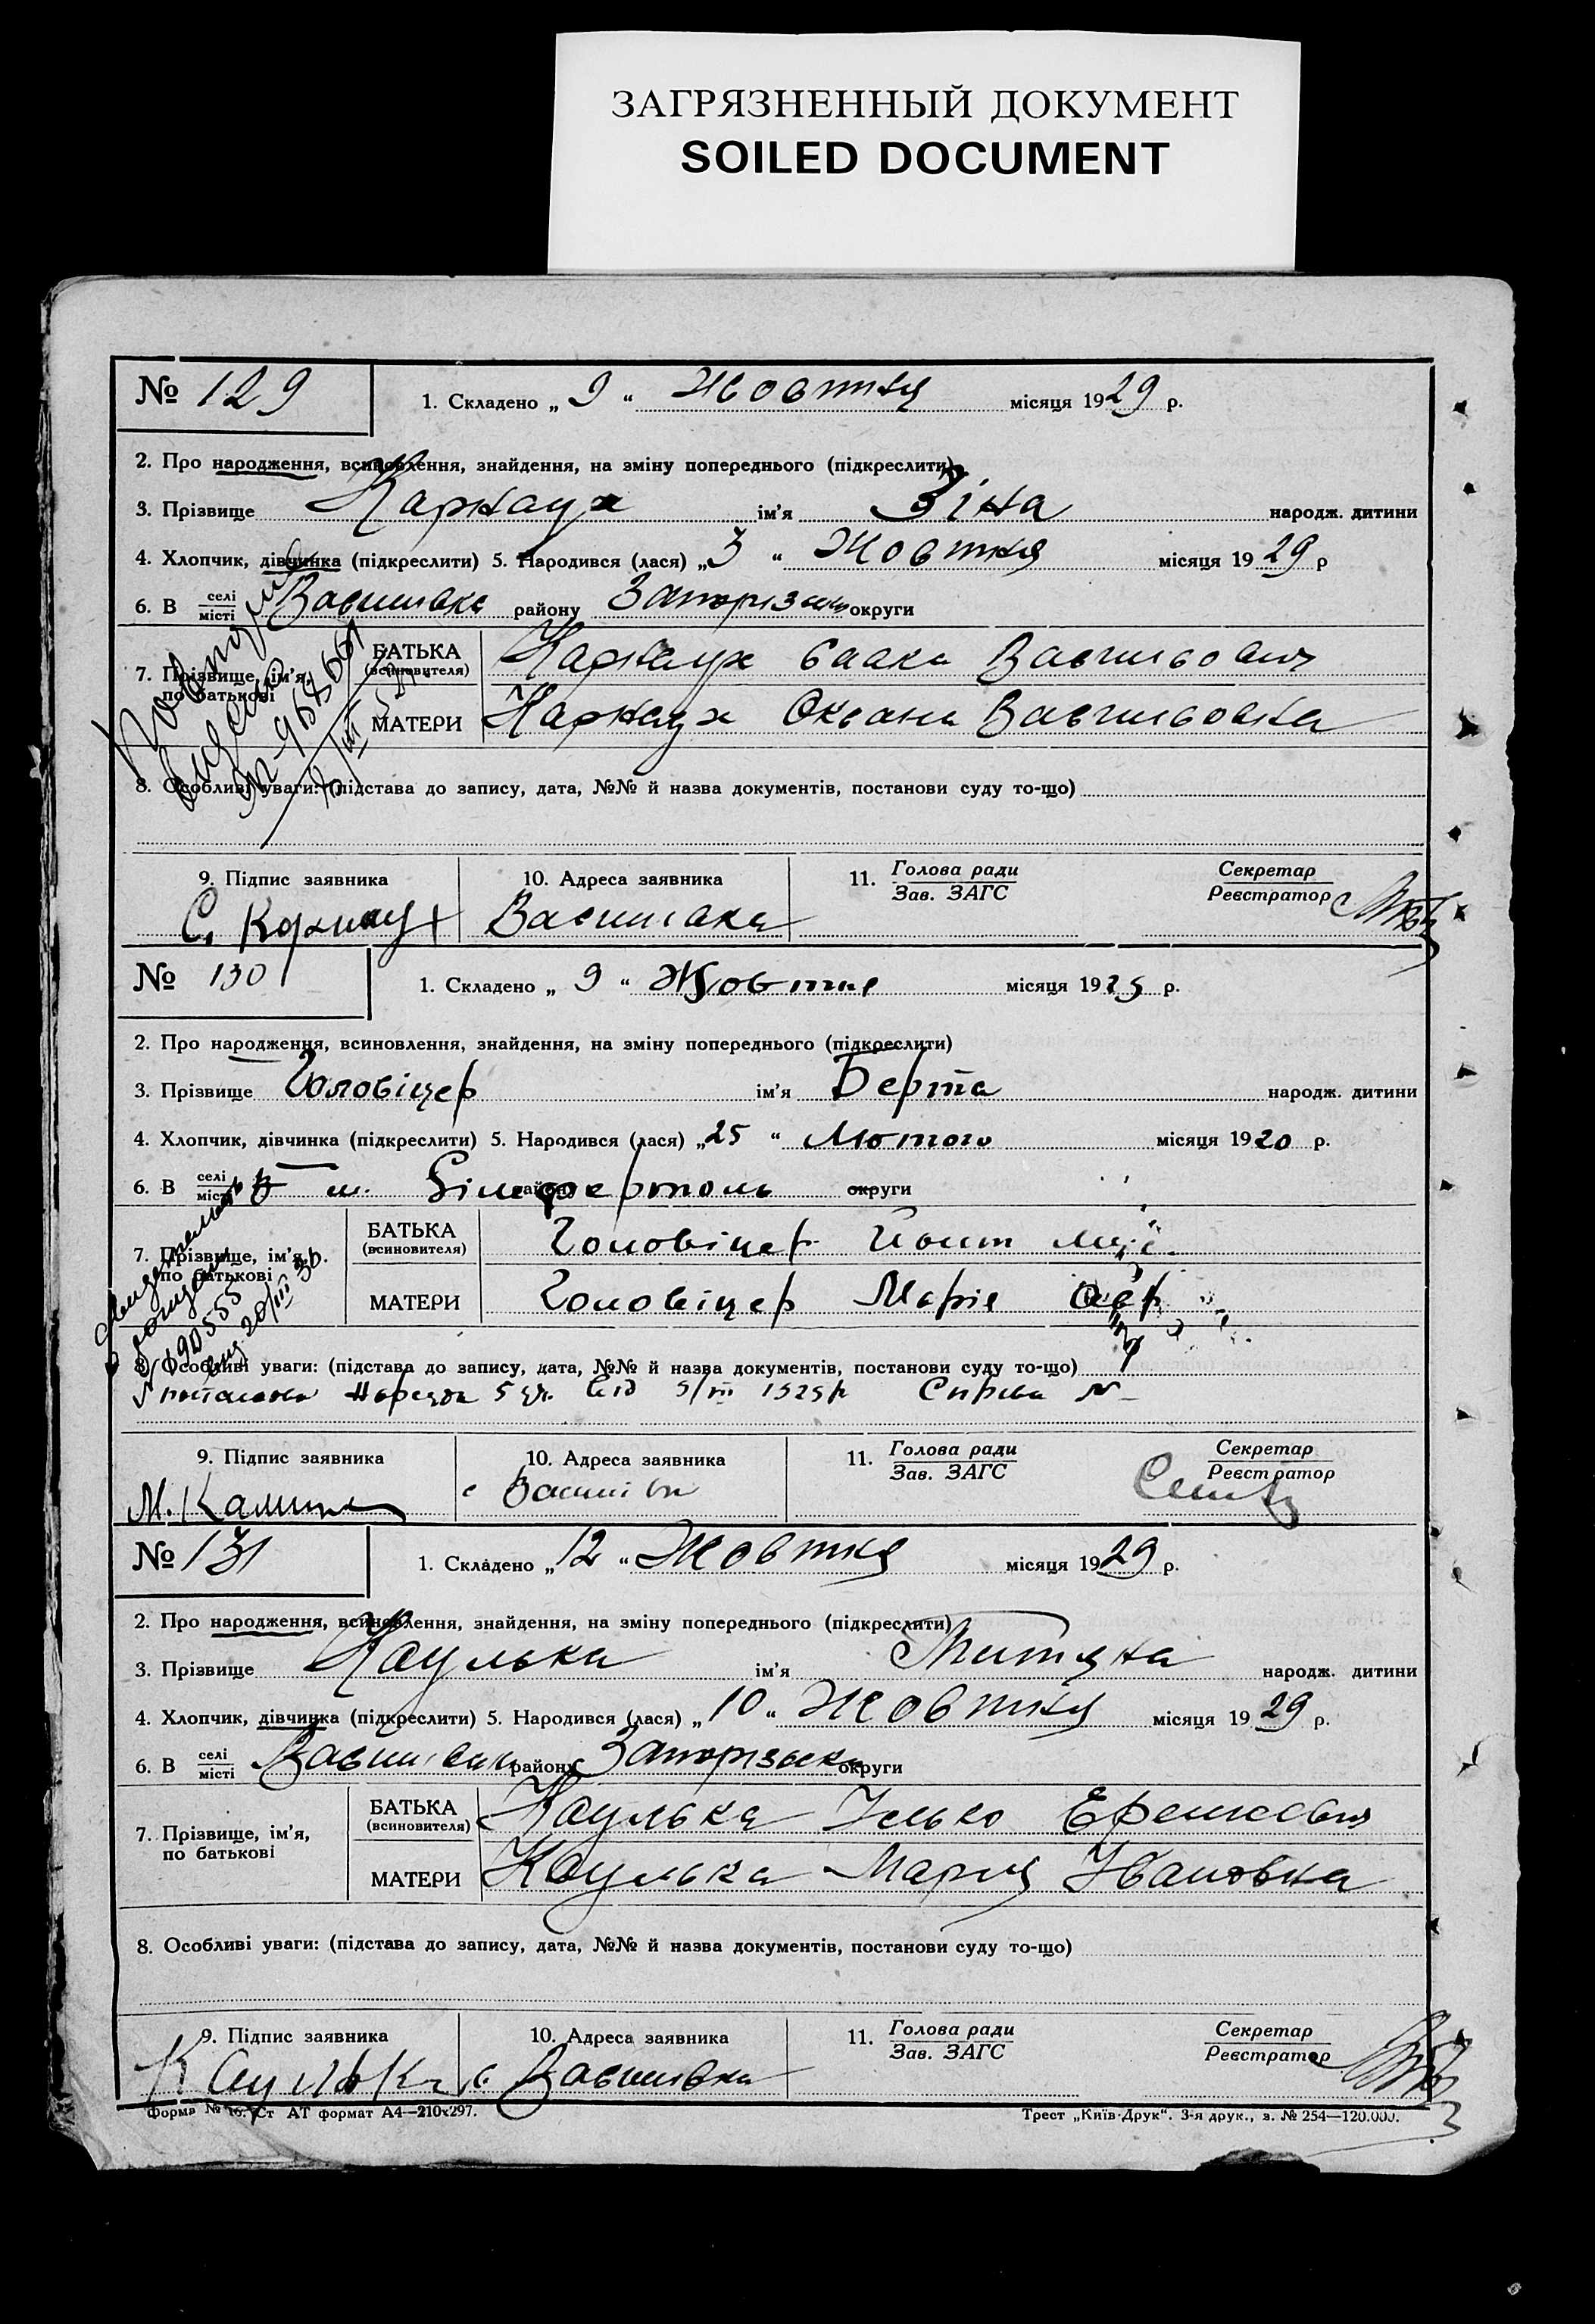 ЗАГРЯЗНЕННЫЙ ДОКУМЕНТ
SOILED DOCUMENT
№ 129
1. Складено „ 9 “ Жовтня місяця 1929 р.
2. Про народження, всиновлення, знайдення, на зміну попереднього (підкреслити)
3. Прізвище Карнаух ім'я Зіна народж. дитини
4. Хлопчик, дівчинка (підкреслити) 5. Народився (лася) „ 3 “ Жовтня місяця 1929 р
6. В селі місті Василівка району Запорізьк округи
7. Прізвище, ім'я, по батькові
БАТЬКА (всиновителя) Карнаух Савка Васильович
МАТЕРИ Карнаух Оксана Васильовна
8. Особливі уваги: (підстава до запису, дата, №№ й назва документів, постанови суду то-що)
9. Підпис заявника 10. Адреса заявника 11. Голова ради Зав. ЗАГС Секретар Реєстратор
С. Карнаух Василівка
№ 130
1. Складено „ 9 “ Жовтня місяця 1929 р.
2. Про народження, всиновлення, знайдення, на зміну попереднього (підкреслити)
3. Прізвище Головіцер ім'я Берта народж. дитини
4. Хлопчик, дівчинка (підкреслити) 5. Народився (лася) „ 25 “ Лютого місяця 1920 р.
6. В селі місті м. Сімферополь району округи
7. Прізвище, ім'я, по батькові
БАТЬКА (всиновителя) Головіцер
МАТЕРИ Головіцер Марія
N 190555
20/III 30
8. Особливі уваги: (підстава до запису, дата, №№ й назва документів, постанови суду то-що)
постанова Нарсуда від Справа N
9. Підпис заявника 10. Адреса заявника 11. Голова ради Зав. ЗАГС Секретар Реєстратор
М. с Василівка
№ 131
1. Складено „ 12 “ Жовтня місяця 1929 р.
2. Про народження, всиновлення, знайдення, на зміну попереднього (підкреслити)
3. Прізвище Каулька ім'я Титяна народж. дитини
4. Хлопчик, дівчинка (підкреслити) 5. Народився (лася) „ 10 “ Жовтня місяця 1929 р.
6. В селі місті Василівка району Запорізька округи
7. Прізвище, ім'я, по батькові
БАТЬКА (всиновителя) Каулька Ілько
МАТЕРИ Каулька Мария Івановна
8. Особливі уваги: (підстава до запису, дата, №№ й назва документів, постанови суду то-що)
9. Підпис заявника 10. Адреса заявника 11. Голова ради Зав. ЗАГС Секретар Реєстратор
Каулька с Василівка
Форма № 16. Ст АТ формат А4—210х297. Трест „Київ-Друк“. 3-я друк., з. № 254—120.000.